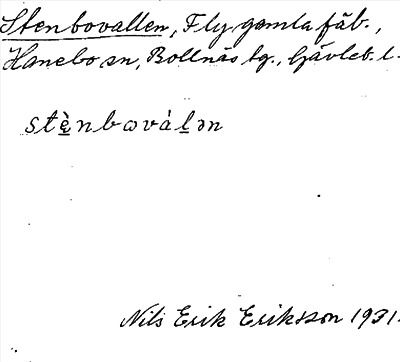 Stenbovallen, Fly gamla fäb.,
Hanebo sn, Bollnäs tg., Gävleb. l.
stè̱nbωvàḻən
Nils Erik Eriksson 1931.